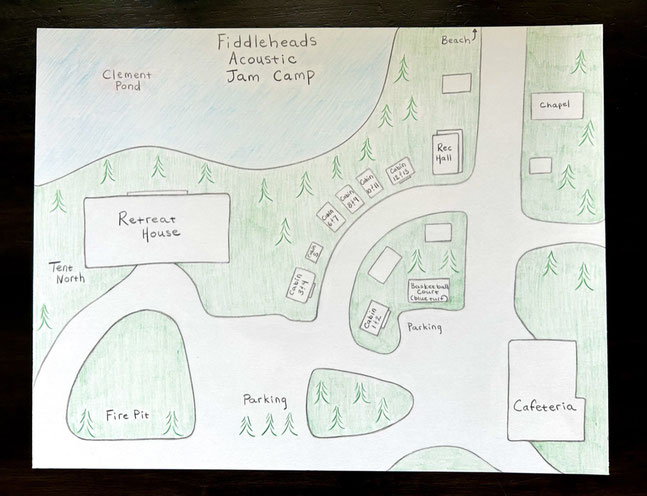 Fiddleheads
Acoustic
Jam Camp
Beach
Clement
Pond
Chapel
Rec
Hall
Cabin
12/13
Cabin
10+11
Cabin
8+9
Cabin
6+7
Cabin
5
Cabin
3+4
Retreat
House
Tent
North
Basketball
Court
(blue turf)
Cabin
1+2
Parking
Parking
Fire Pit
Cafeteria